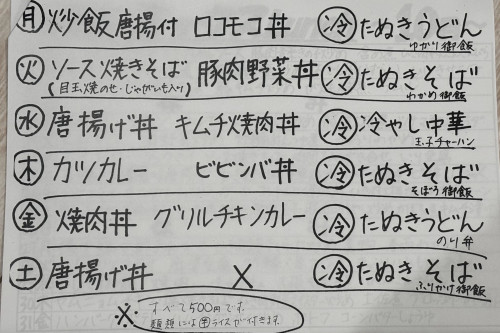 ㊊ 炒飯唐揚付 ロコモコ丼 ㊋冷 たぬきうどん
ゆかり御飯
㊋ ソース焼きそば 豚肉野菜丼 冷 たぬきそば
(目玉焼のせ・じゃがいも入り) わかめ御飯
㊌ 唐揚げ丼 キムチ焼肉丼 冷 冷やし中華
玉子チャーハン
㊍ カツカレー ビビンバ丼 冷 たぬきそば
そぼろ御飯
㊎ 焼肉丼 グリルチキンカレー 冷 たぬきうどん
のり弁
㊏ 唐揚げ丼 × 冷 たぬきそば
ふりかけ御飯
※ すべて500円です。
麺類には㊥ライスが付きます。